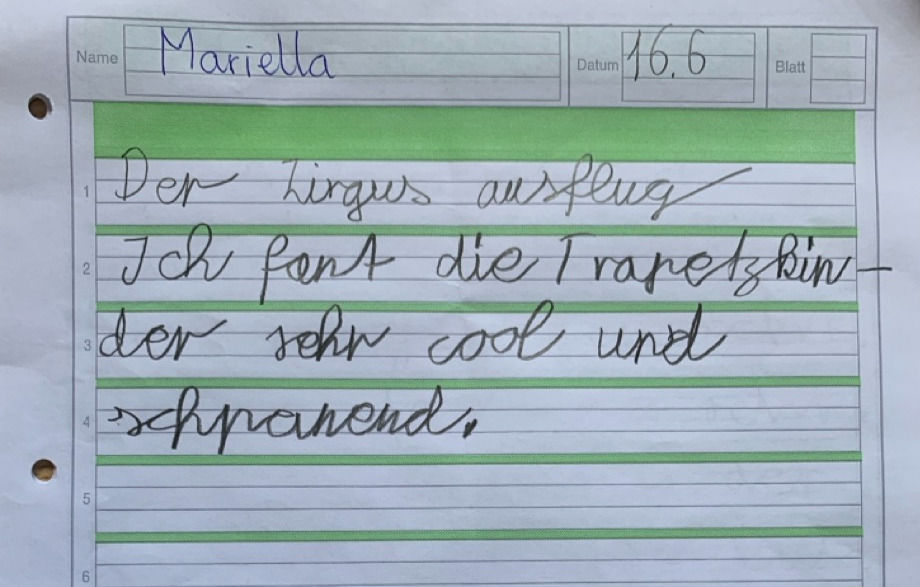 Name Mariella Datum 16.6 Blatt
1 Der Zirgus ausflug
2 Ich fant die Trapetzkin-
3 der sehr cool und
4 schpanend.
5
6